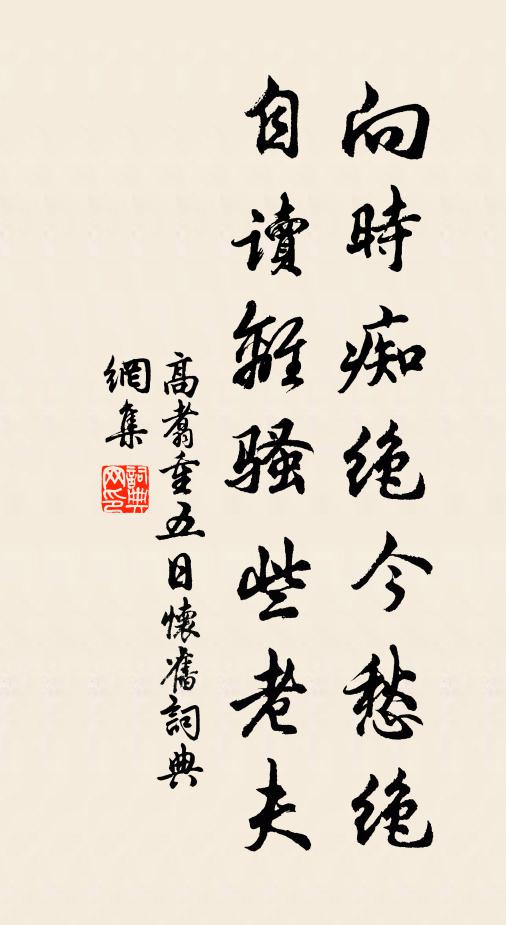 向時痴绝今愁绝
自读離骚些老夫
高翥重五日懷舊詞典
網集
詞典
网印